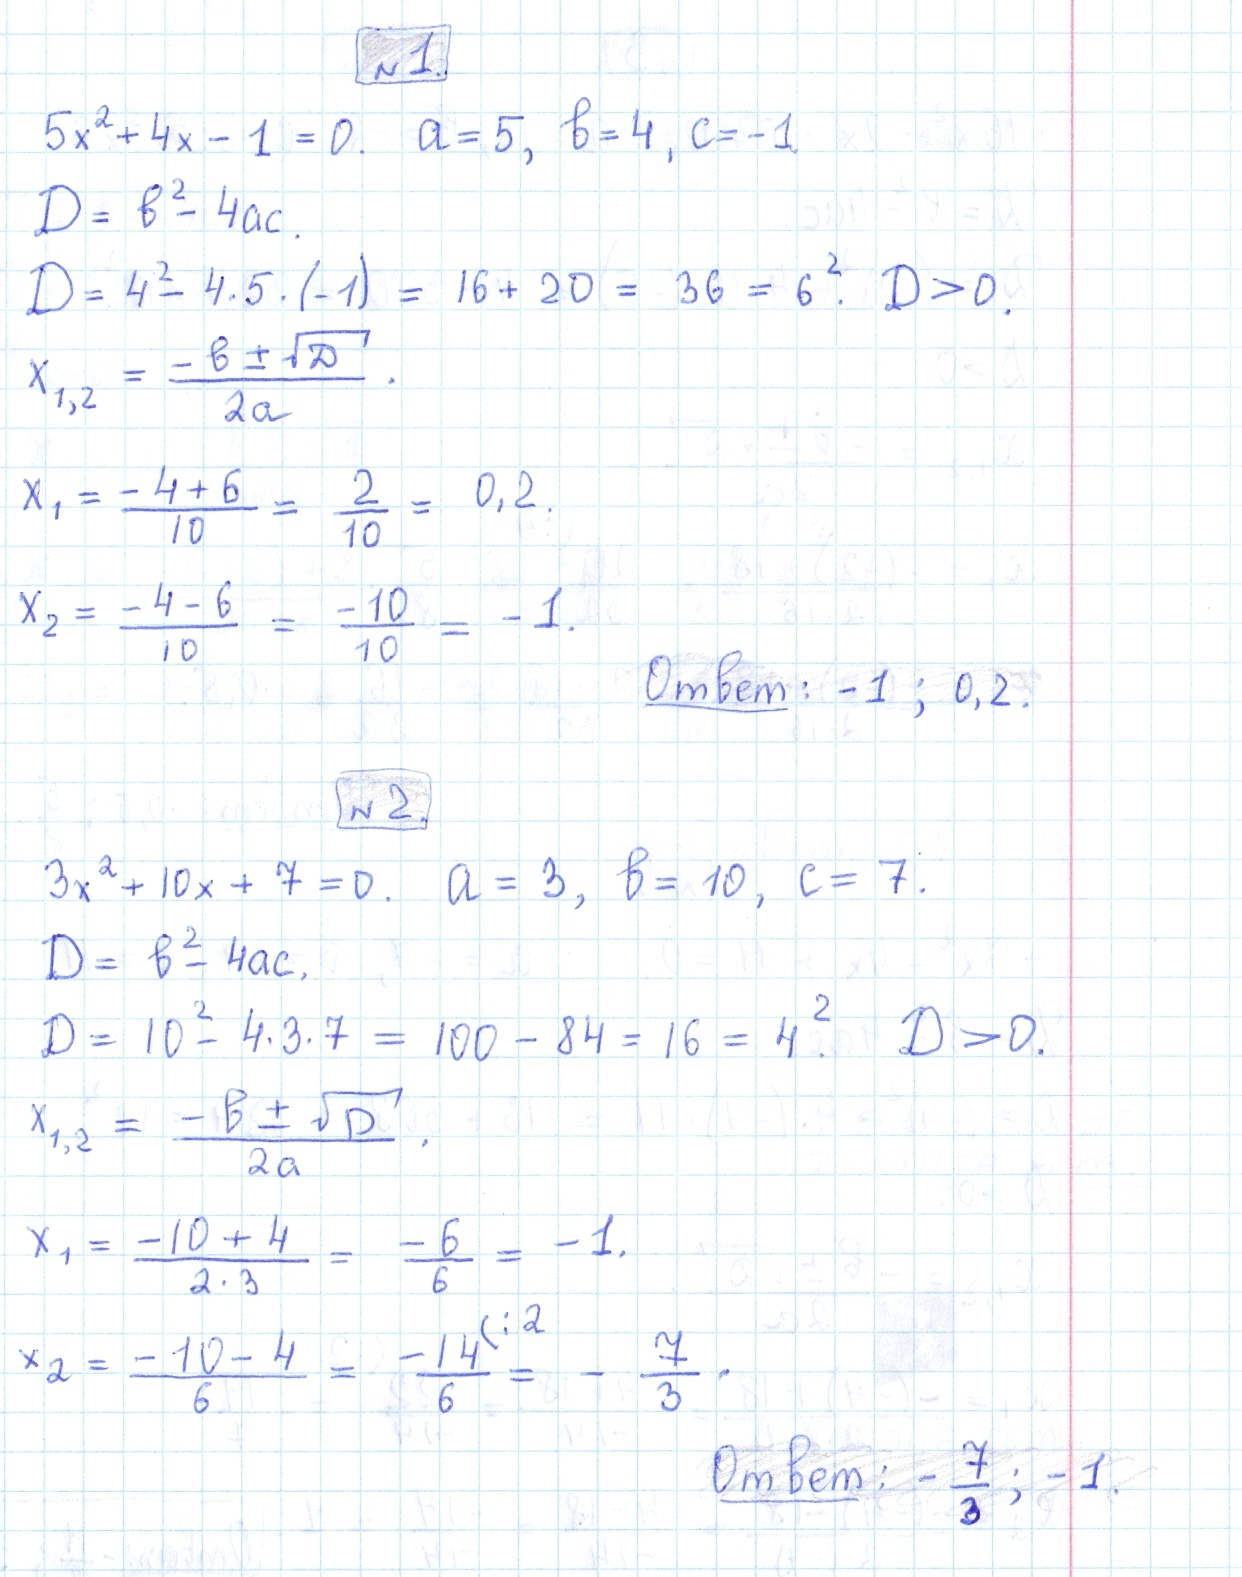 №1.
5x² + 4x - 1 = 0. a = 5, b = 4, c = -1
D = b² - 4ac.
D = 4² - 4·5·(-1) = 16 + 20 = 36 = 6². D > 0.
x₁,₂ = (-b ± √D)/(2a).
x₁ = (-4 + 6)/10 = 2/10 = 0,2.
x₂ = (-4 - 6)/10 = -10/10 = -1.
Ответ: -1 ; 0,2.
№2.
3x² + 10x + 7 = 0. a = 3, b = 10, c = 7.
D = b² - 4ac.
D = 10² - 4·3·7 = 100 - 84 = 16 = 4². D > 0.
x₁,₂ = (-b ± √D)/(2a).
x₁ = (-10 + 4)/(2·3) = -6/6 = -1.
x₂ = (-10 - 4)/6 = -14/6 (:2 = - 7/3.
Ответ: - 7/3 ; -1.